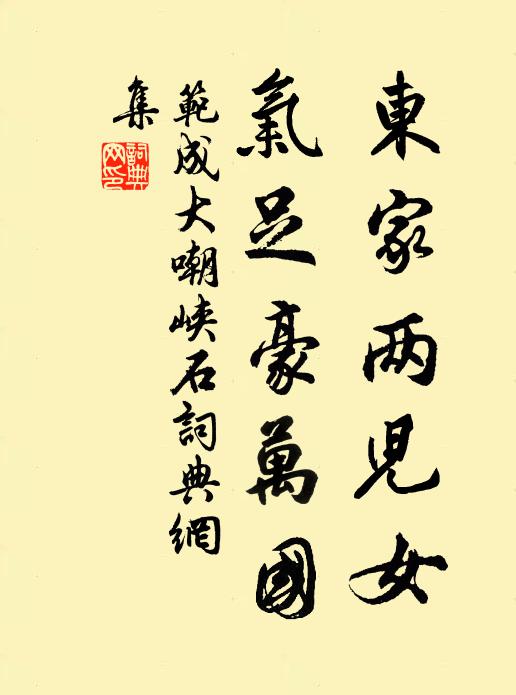 東家两児女
氣足豪萬國
範成大嘲峽石詞典網
集
詞典
网印